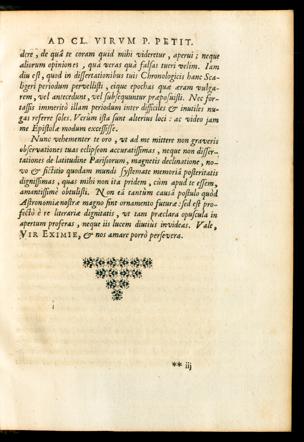 AD CL. VIRVM P. PETIT.
dere, de quâ te coram quid mihi videretur, aperui; neque
aliorum opiniones, quà veras quà falsas tueri velim. Iam
diu est, quod in dissertationibus tuis Chronologicis hanc Sca-
ligeri periodum pervellisti, eique epochas quæ æram vulga-
rem, vel antecedunt, vel subsequuntur præposuisti. Nec for-
tassis immeritò illam periodum inter difficiles & inutiles nu-
gas referre soles. Verùm ista sunt alterius loci: ac video jam
me Epistolæ modum excessisse.
Nunc vehementer te oro, ut ad me mittere non graveris
observationes tuas eclipseon accuratissimas, neque non disser-
tationes de latitudine Parisiorum, magnetis declinatione, no-
vo & fictitio quodam mundi systemate memoriâ posteritatis
dignissimas, quas mihi non ita pridem, cùm apud te essem,
amantissimè obtulisti. Non eâ tantùm causâ postulo quòd
Astronomiæ nostræ magno sint ornamento futuræ: sed est pro-
fectò è re literariæ dignitatis, ut tam præclara opuscula in
apertum proferas, neque iis lucem diutius invideas. Vale,
VIR EXIMIE, & nos amare porrò persevera.
** iij